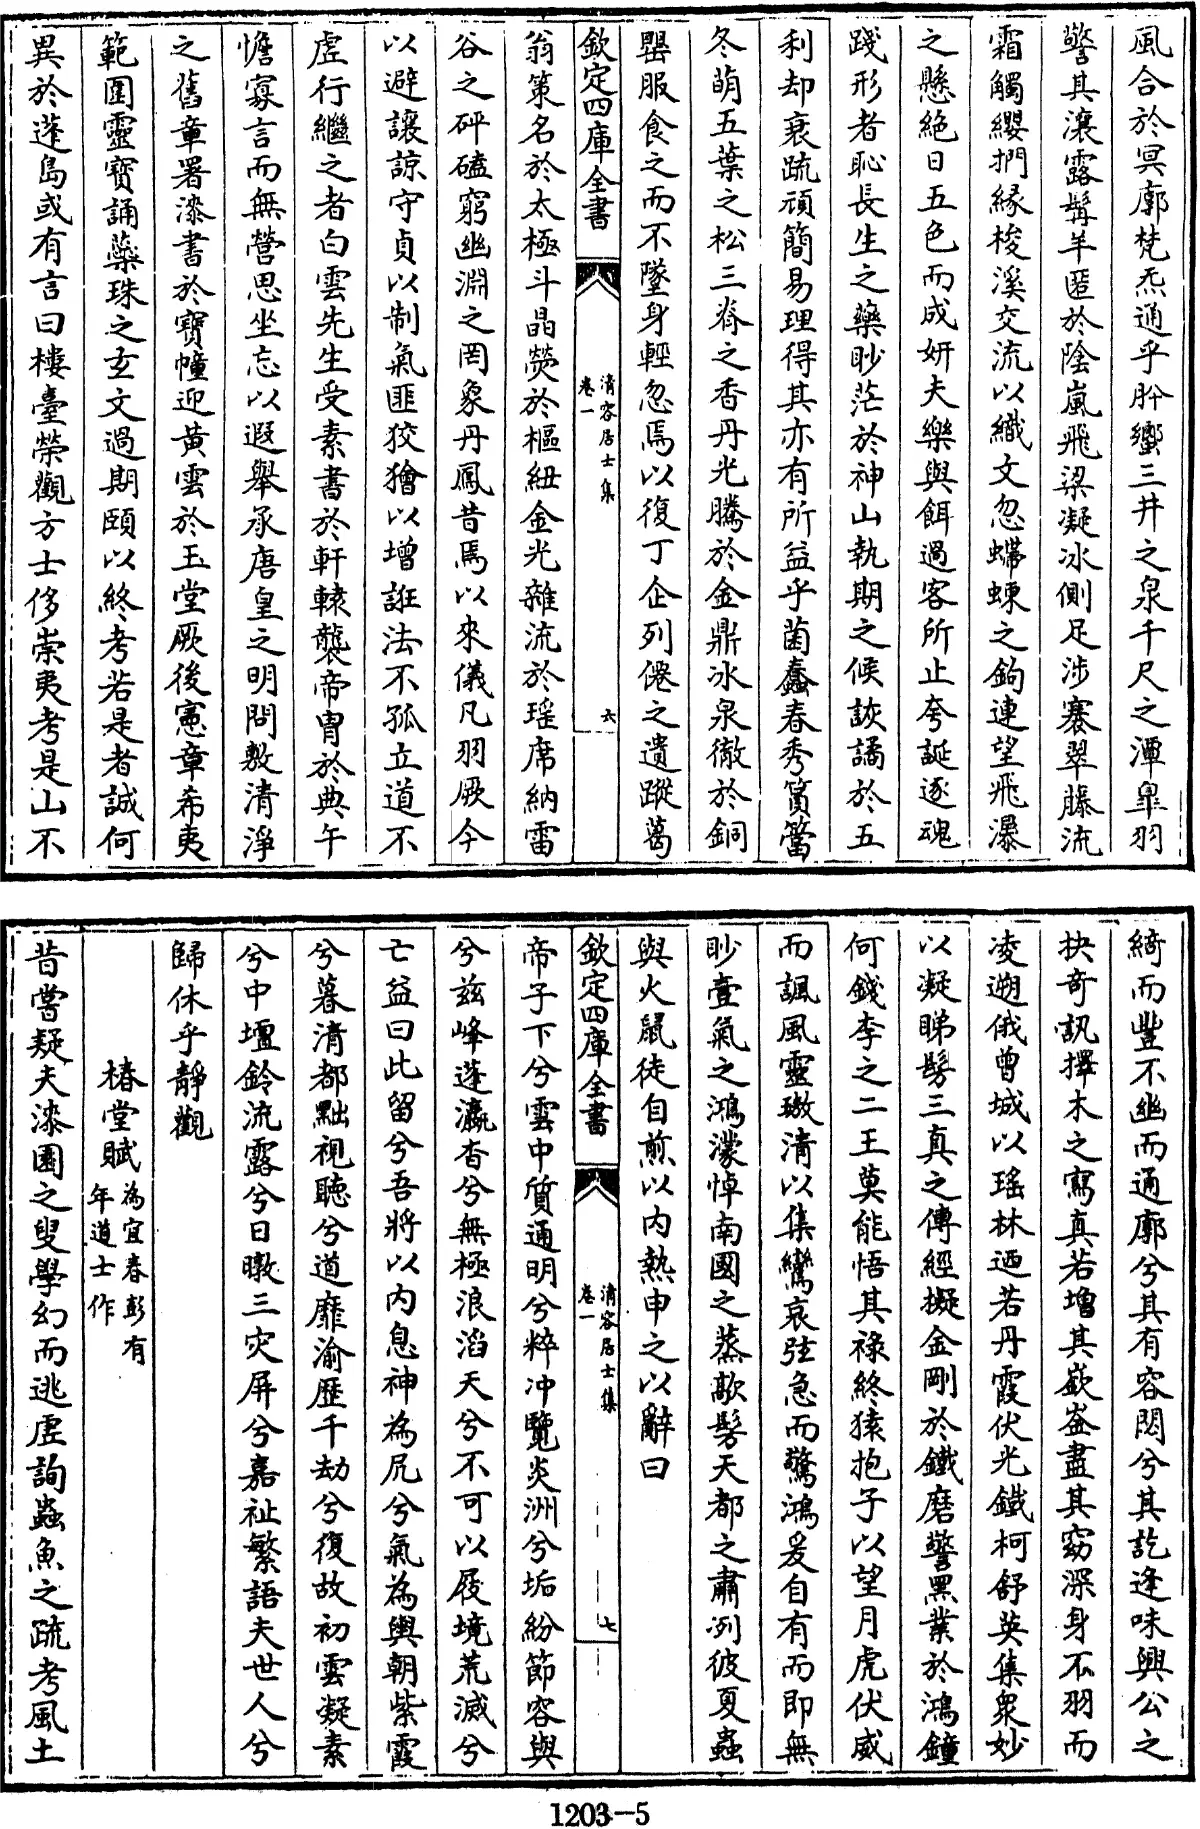 風合於冥廓梵炁通乎肸蠁三井之泉千尺之潭皐羽
警其瀼露髯羊匿於陰嵐飛梁凝冰側足涉褰翠藤流
霜觸纓捫緣梭溪交流以織文忽蠕蝀之鉤連望飛瀑
之懸絶日五色而成妍夫樂與餌過客所止夸誕逐魂
踐形者恥長生之藥眇茫於神山執期之候詼譎於五
利却衰䟽頑簡易理得其亦有所益乎菌蠢春秀篔簹
冬萌五葉之松三脊之香丹光騰於金鼎冰泉徹於銅
罌服食之而不墜身輕忽焉以復丁企列僊之遺蹤葛
欽定四庫全書
清容居士集
卷一
六
翁策名於太極斗晶熒於樞紐金光雜流於瑶席納雷
谷之砰磕窮幽淵之罔象丹鳳昔焉以來儀凡羽厥今
以避讓諒守貞以制氣匪狡獪以增誑法不孤立道不
虛行繼之者白雲先生受素書於軒轅襲帝胄於典午
憺寡言而無營思坐忘以遐舉承唐皇之明問敷清淨
之舊章署漆書於寶幢迎黄雲於玉堂厥後憲章希夷
範圍靈寳誦蘂珠之玄文過期頤以終考若是者誠何
異於蓬島或有言曰樓臺榮觀方士侈崇夷考是山不
綺而豐不幽而通廓兮其有容閎兮其訖逢味興公之
抉奇訊擇木之寫真若增其嶔崟盡其窈深身不羽而
凌遡俄曾城以瑤林迺若丹霞伏光鐵柯舒英集衆妙
以凝睇髣三真之傳經擬金剛於鐵磨警黑業於鴻鐘
何錢李之二王莫能悟其祿終猿抱子以望月虎伏威
而諷風靈璈清以集鸞哀弦急而驚鴻爰自有而即無
眇壹氣之鴻濛悼南國之蒸歊髣天都之肅冽彼夏蟲
與火鼠徒自煎以内熱申之以辭曰
欽定四庫全書
清容居士集
卷一
七
帝子下兮雲中質通明兮粹冲覽炎洲兮垢紛節容與
兮兹峰蓬瀛杳兮無極浪滔天兮不可以屐境荒滅兮
亡益曰此留兮吾將以内息神為尻兮氣為輿朝紫霞
兮暮清都黜視聽兮道靡渝歷千劫兮復故初雲凝素
兮中壇鈴流露兮日暾三灾屏兮嘉祉繁語夫世人兮
歸休乎靜觀
椿堂賦為宜春彭有
年道士作
昔嘗疑夫漆園之叟學幻而逃虛詢蟲魚之疏考風土
1203-5